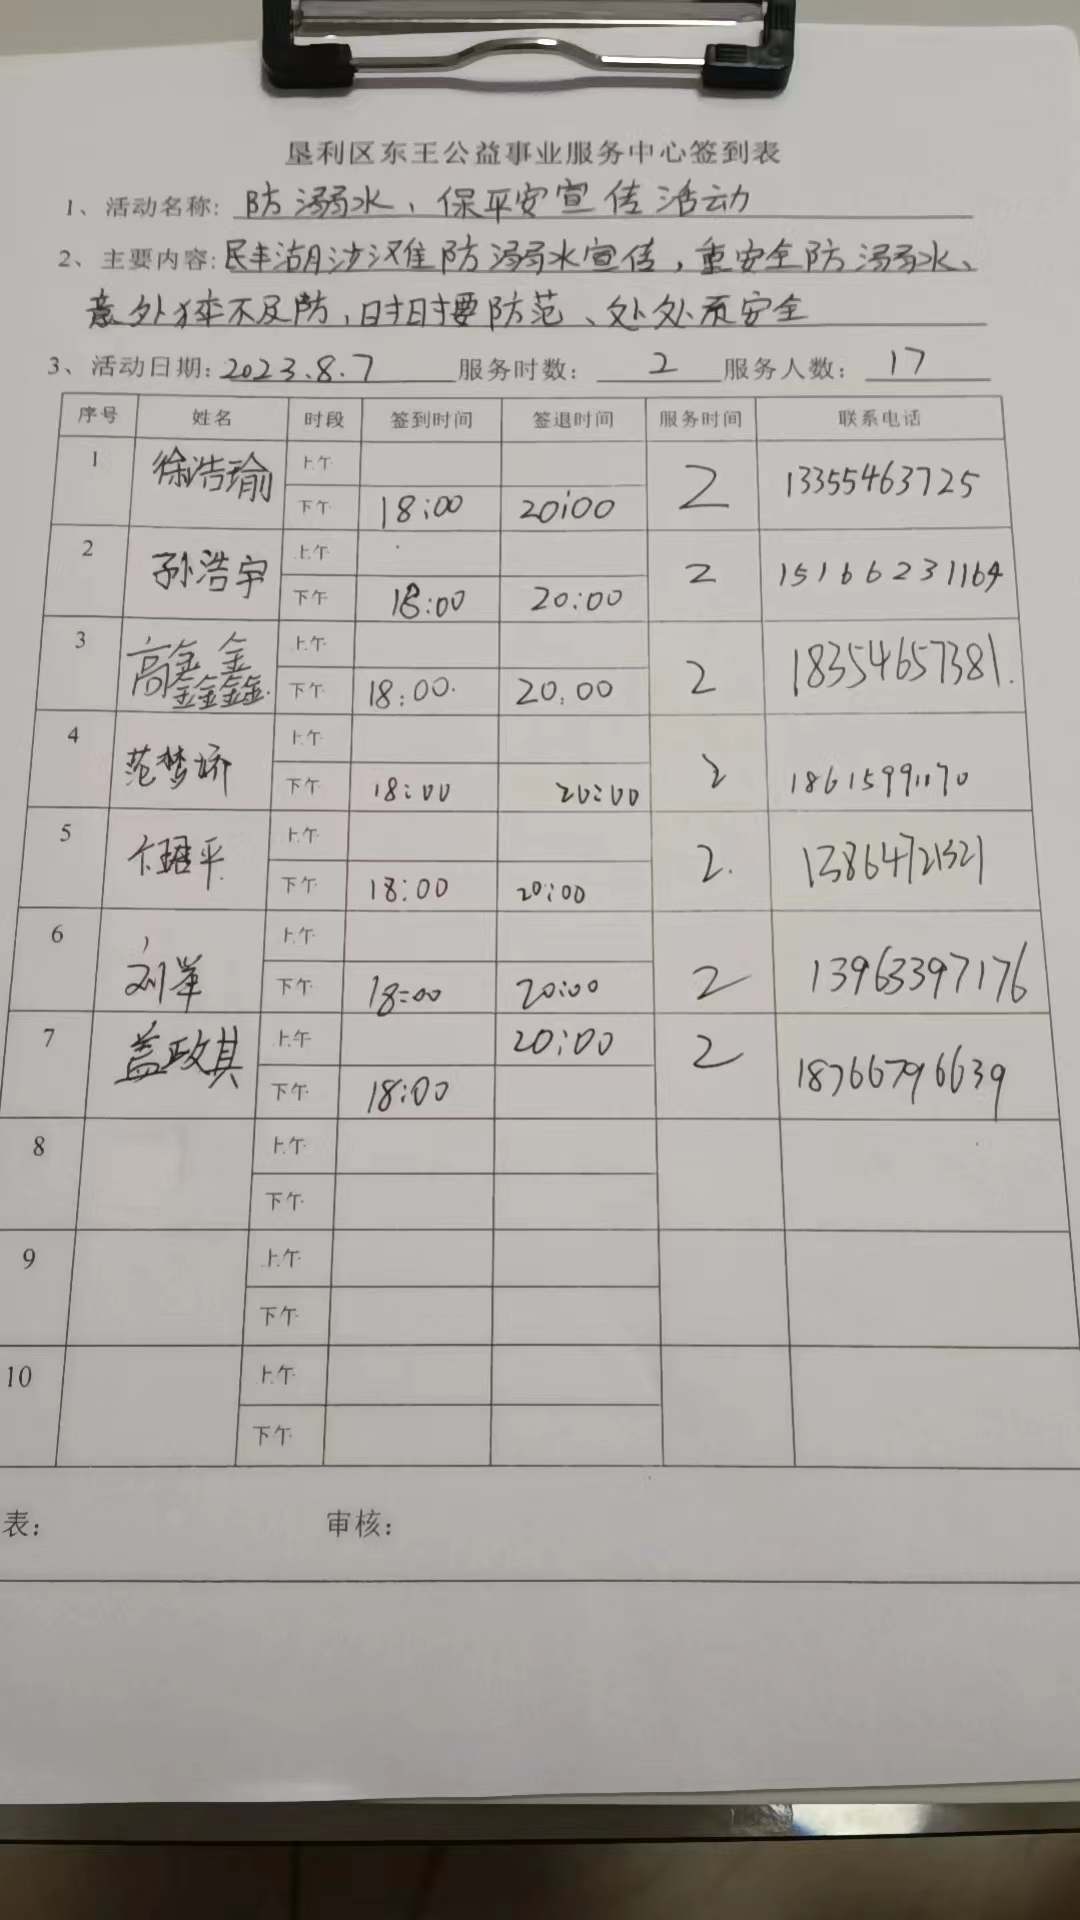 垦利区东王公益事业服务中心签到表
1、活动名称: 防溺水、保平安宣传活动
2、主要内容: 民丰湖沙滩防溺水宣传，重安全防溺水、
意外猝不及防，时时要防范、处处系安全
3、活动日期: 2023.8.7 服务时数: 2 服务人数: 17
序号 姓名 时段 签到时间 签退时间 服务时间 联系电话
1 徐浩瑜 上午 2 13355463725
下午 18:00 20:00
2 孙浩宇 上午 2 15166231164
下午 18:00 20:00
3 高鑫鑫 上午 2 18354657381.
下午 18:00. 20:00
4 范梦娇 上午 2 18615991170
下午 18:00 20:00
5 平 上午 2. 13864721321
下午 18:00 20:00
6 刘 上午 2 13963397176
下午 18:00 20:00
7 盖政其 上午 20:00 2 18766796639
下午 18:00
8 上午
下午
9 上午
下午
10 上午
下午
表: 审核: